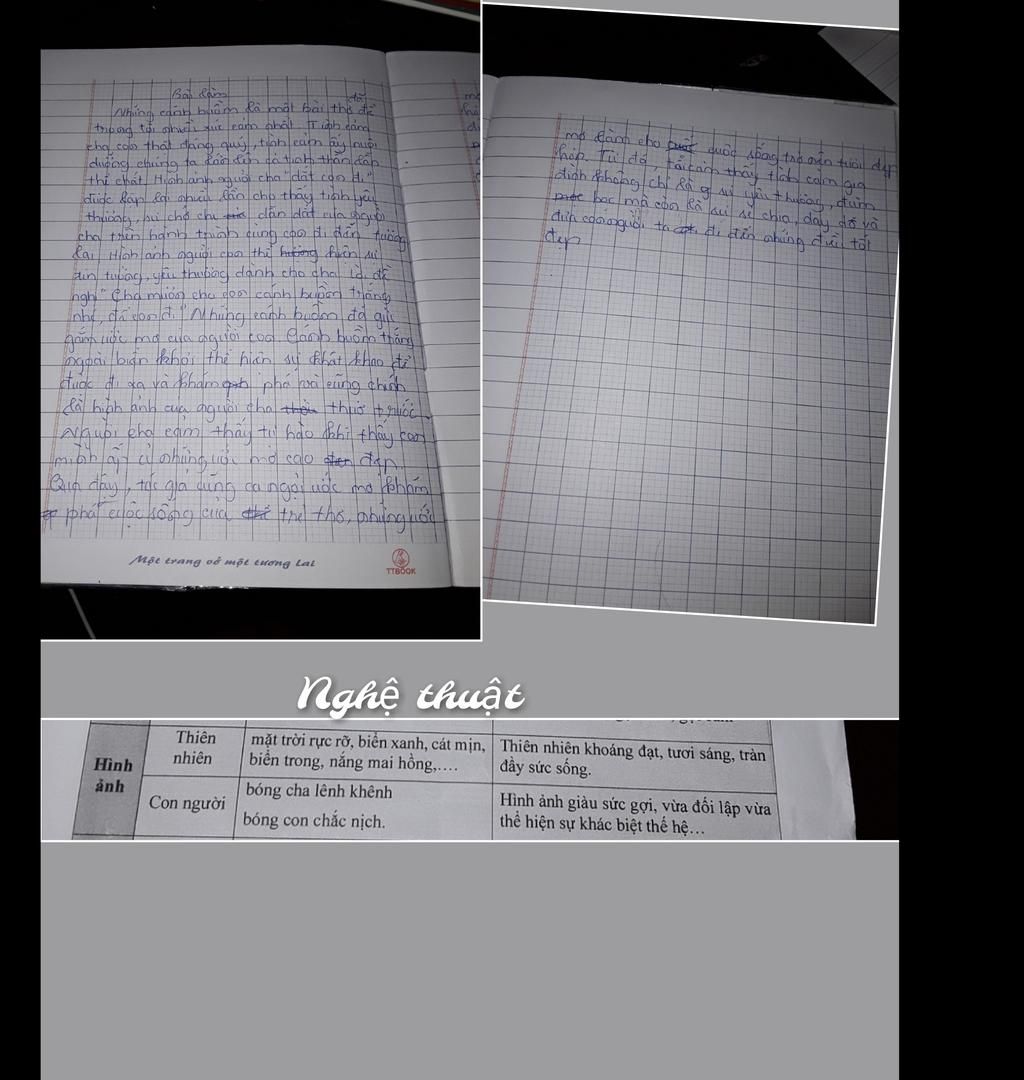 Bài làm
Những cánh buồm là một bài thơ đã để
trong tôi nhiều xúc cảm nhất. Tình cảm
cha con thật đáng quý, tình cảm ấy nuôi
dưỡng chúng ta lớn lên cả tinh thần lẫn
thể chất. Hình ảnh người cha "dắt con đi"
được lặp lại nhiều lần cho thấy tình yêu
thương, sự chở che dẫn dắt của người
cha trên hành trình cùng con đi đến tương
lai. Hình ảnh người con thể hiện sự
tin tưởng, yêu thương dành cho cha. Lời đề
nghị "Cha mượn cho con cánh buồm trắng
nhé, để con đi". Những cánh buồm đã gửi
gắm ước mơ của người con. Cánh buồm trắng
ngoài biển khơi thể hiện sự khát khao để
được đi xa và khám phá và cũng chính
là hình ảnh của người cha thuở trước.
Người cha cảm thấy tự hào khi thấy con
mình ấp ủ những ước mơ cao đẹp.
Qua đây, tác giả cũng ca ngợi ước mơ khám
phá cuộc sống của trẻ thơ, những ước
Một trang vở một tương lai
TTBOOK
mơ làm cho cuộc sống trở nên tươi đẹp
hơn. Từ đó, tôi cảm thấy tình cảm gia
đình không chỉ là sự yêu thương, đùm
bọc mà còn là sự sẻ chia, dạy dỗ và
đưa con người ta đi đến những điều tốt
đẹp
Nghệ thuật
Hình ảnh
Thiên nhiên
mặt trời rực rỡ, biển xanh, cát mịn,
biển trong, nắng mai hồng,....
Thiên nhiên khoáng đạt, tươi sáng, tràn
đầy sức sống.
Con người
bóng cha lênh khênh
bóng con chắc nịch.
Hình ảnh giàu sức gợi, vừa đối lập vừa
thể hiện sự khác biệt thế hệ...